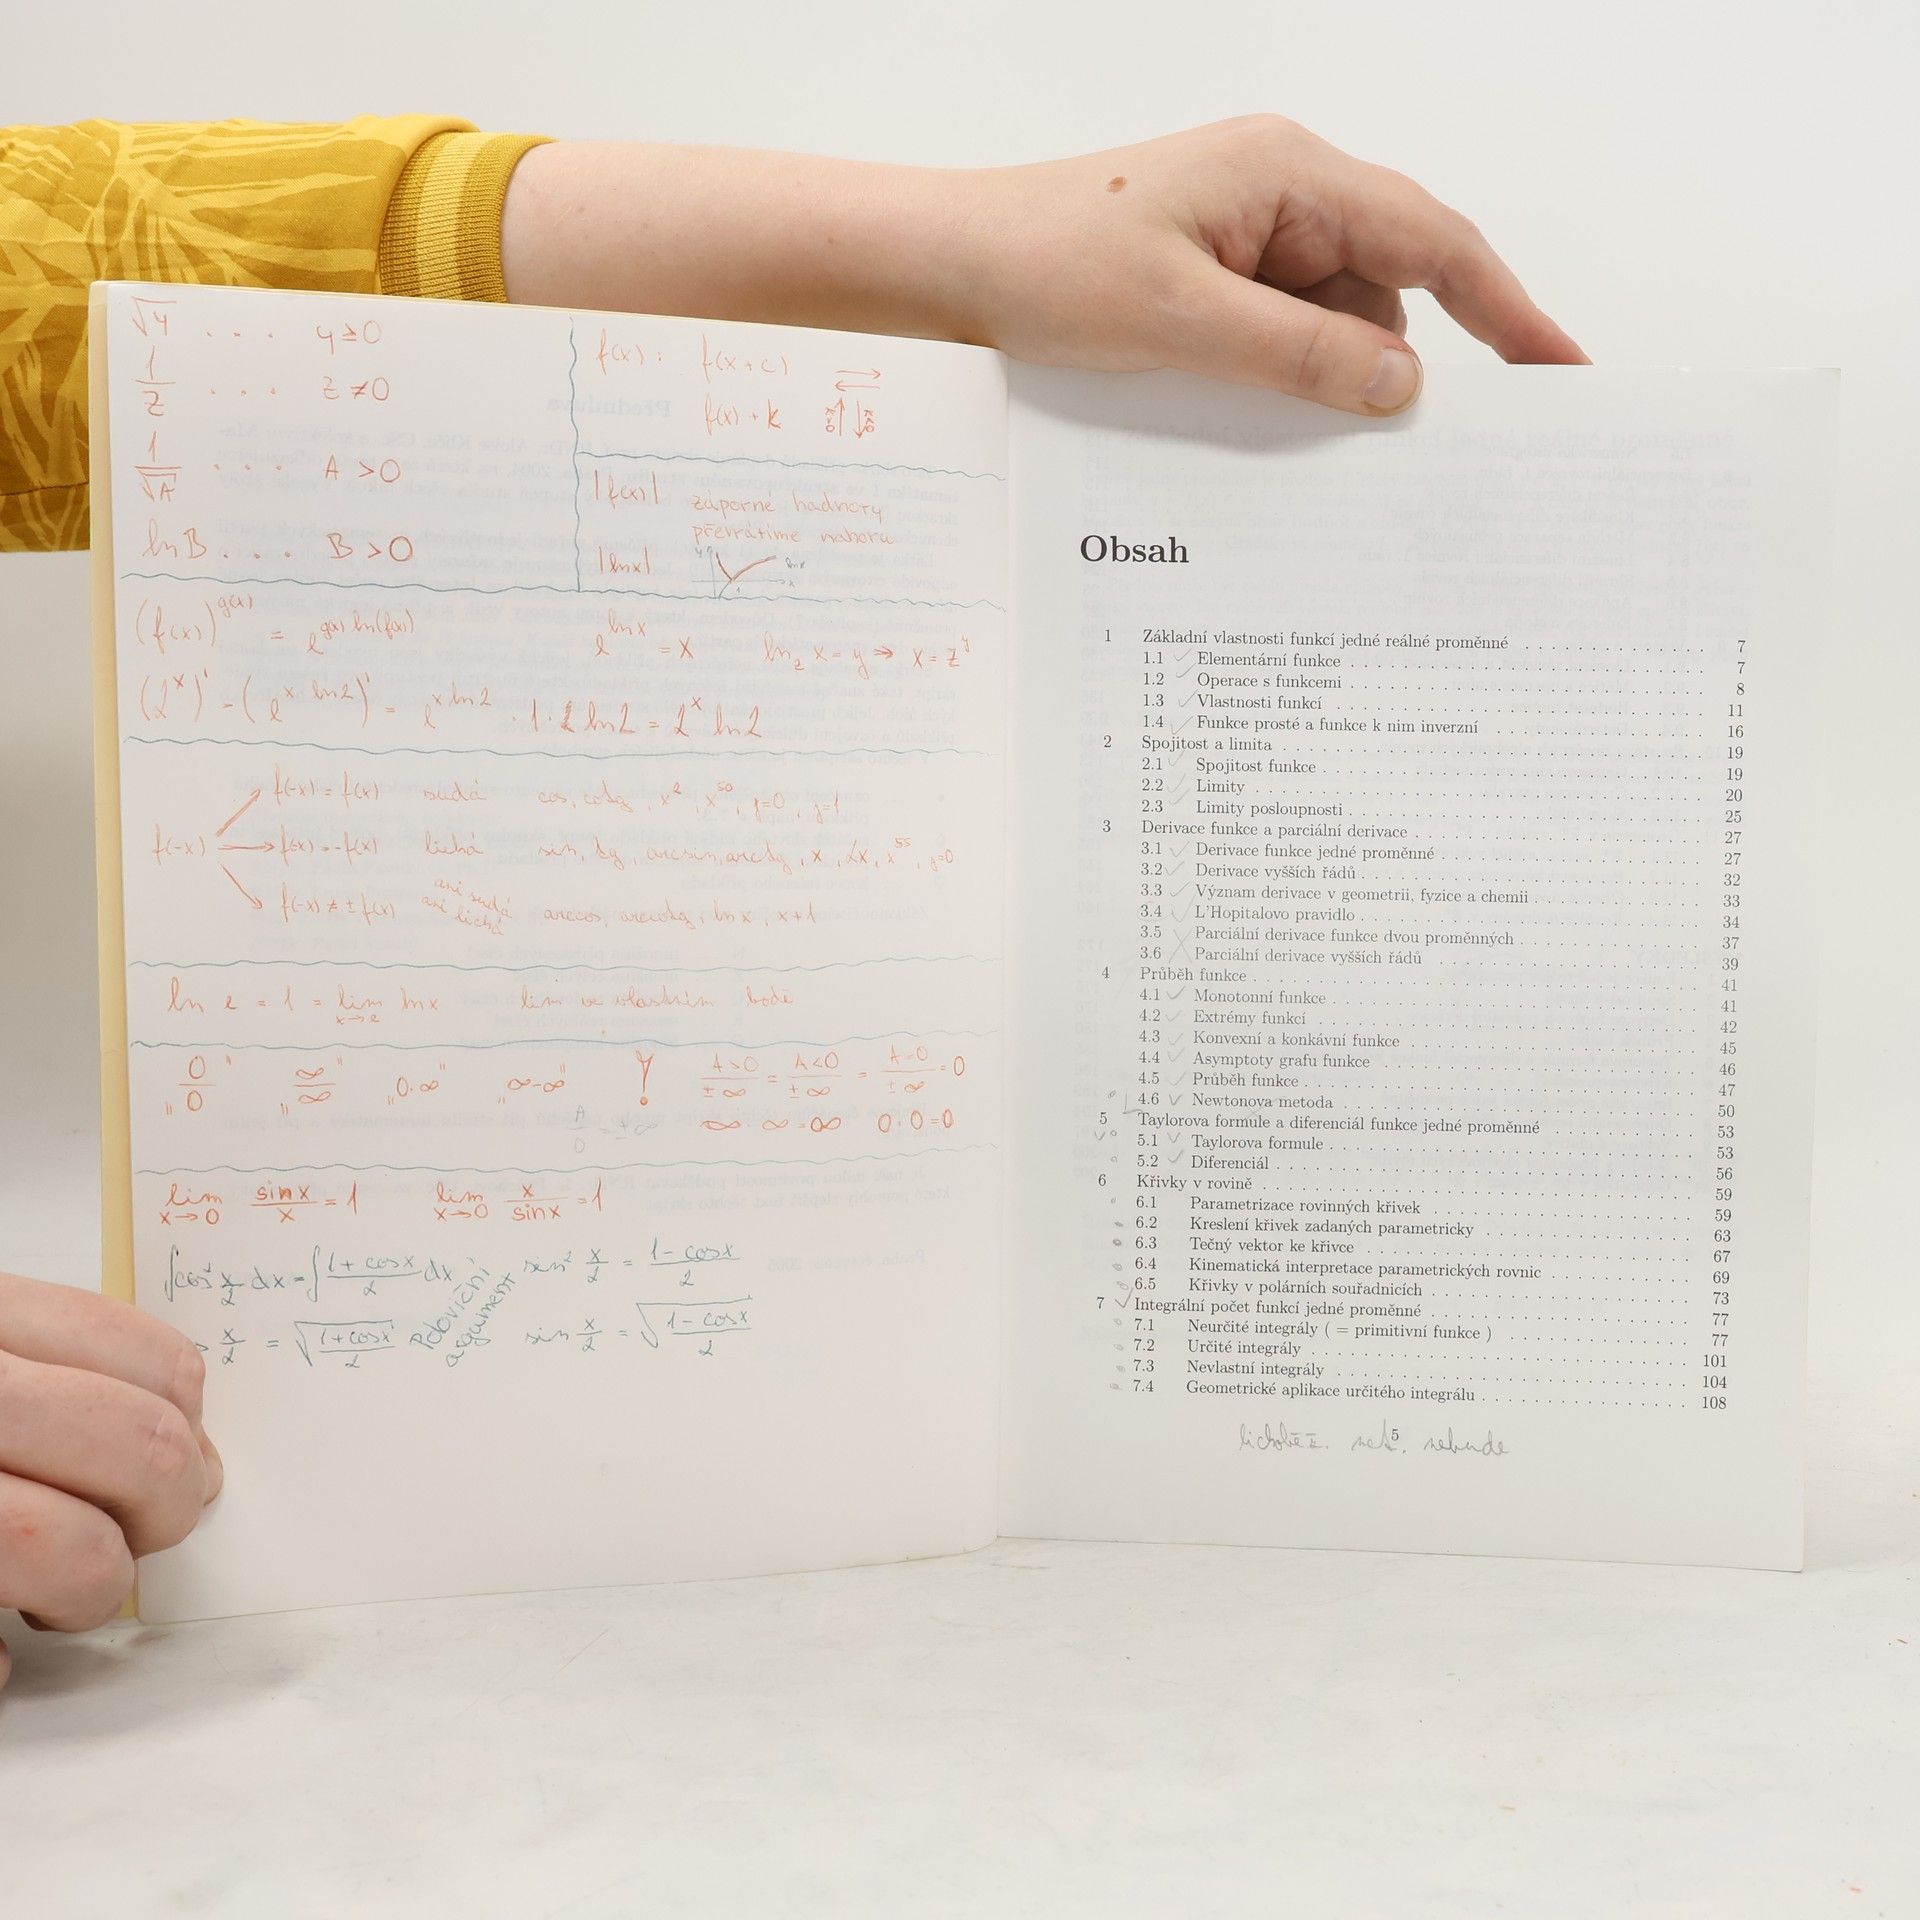 √y . . . y ≥ 0
1/z . . . z ≠ 0
1/√A . . . A > 0
ln B . . . B > 0
f(x) : f(x + c)
f(x) + k
|f(x)| záporné hodnoty
převrátíme nahoru
|lnx|
(f(x))^g(x) = e^g(x) ln(f(x)) e^lnx = x ln₂ x = y ⇒ x = 2^y
(2^x)' = (e^x ln2)' = e^x ln2 · 1 · ln2 = 2^x ln2
f(-x) = f(x) sudá cos, cotg, x², x^50, y=0, y=1
f(-x) f(-x) = -f(x) lichá sin, tg, arcsin, arctg, x, 2x, x^55, y=0
f(-x) ≠ ± f(x) ani sudá ani lichá arccos, arccotg, ln x, x+1
ln e = 1 = lim x→e lnx lim ve vlastním bodě
„0/0" „∞/∞" „0·∞" „∞-∞" ! A>0/±∞ = A<0/±∞ = A=0/±∞ = 0
A/0 = ±∞ ∞ · ∞ = ∞ 0 · 0 = 0
lim x→0 sinx/x = 1 lim x→0 x/sinx = 1
∫cos² x/2 dx = ∫ 1+cosx/2 dx sin² x/2 = 1-cosx/2
x/2 = √1+cosx/2 poloviční argument sin x/2 = √1-cosx/2
Obsah
1 Základní vlastnosti funkcí jedné reálné proměnné 7
1.1 Elementární funkce 7
1.2 Operace s funkcemi 8
1.3 Vlastnosti funkcí 11
1.4 Funkce prosté a funkce k nim inverzní 16
2 Spojitost a limita 19
2.1 Spojitost funkce 19
2.2 Limity 20
2.3 Limity posloupnosti 25
3 Derivace funkce a parciální derivace 27
3.1 Derivace funkce jedné proměnné 27
3.2 Derivace vyšších řádů 32
3.3 Význam derivace v geometrii, fyzice a chemii 33
3.4 L'Hopitalovo pravidlo 34
3.5 Parciální derivace funkce dvou proměnných 37
3.6 Parciální derivace vyšších řádů 39
4 Průběh funkce 41
4.1 Monotonní funkce 41
4.2 Extrémy funkcí 42
4.3 Konvexní a konkávní funkce 45
4.4 Asymptoty grafu funkce 46
4.5 Průběh funkce 47
4.6 Newtonova metoda 50
5 Taylorova formule a diferenciál funkce jedné proměnné 53
5.1 Taylorova formule 53
5.2 Diferenciál 56
6 Křivky v rovině 59
6.1 Parametrizace rovinných křivek 59
6.2 Kreslení křivek zadaných parametricky 63
6.3 Tečný vektor ke křivce 67
6.4 Kinematická interpretace parametrických rovnic 69
6.5 Křivky v polárních souřadnicích 73
7 Integrální počet funkcí jedné proměnné 77
7.1 Neurčité integrály ( = primitivní funkce ) 77
7.2 Určité integrály 101
7.3 Nevlastní integrály 104
7.4 Geometrické aplikace určitého integrálu 108
5
lichoběž. nebude